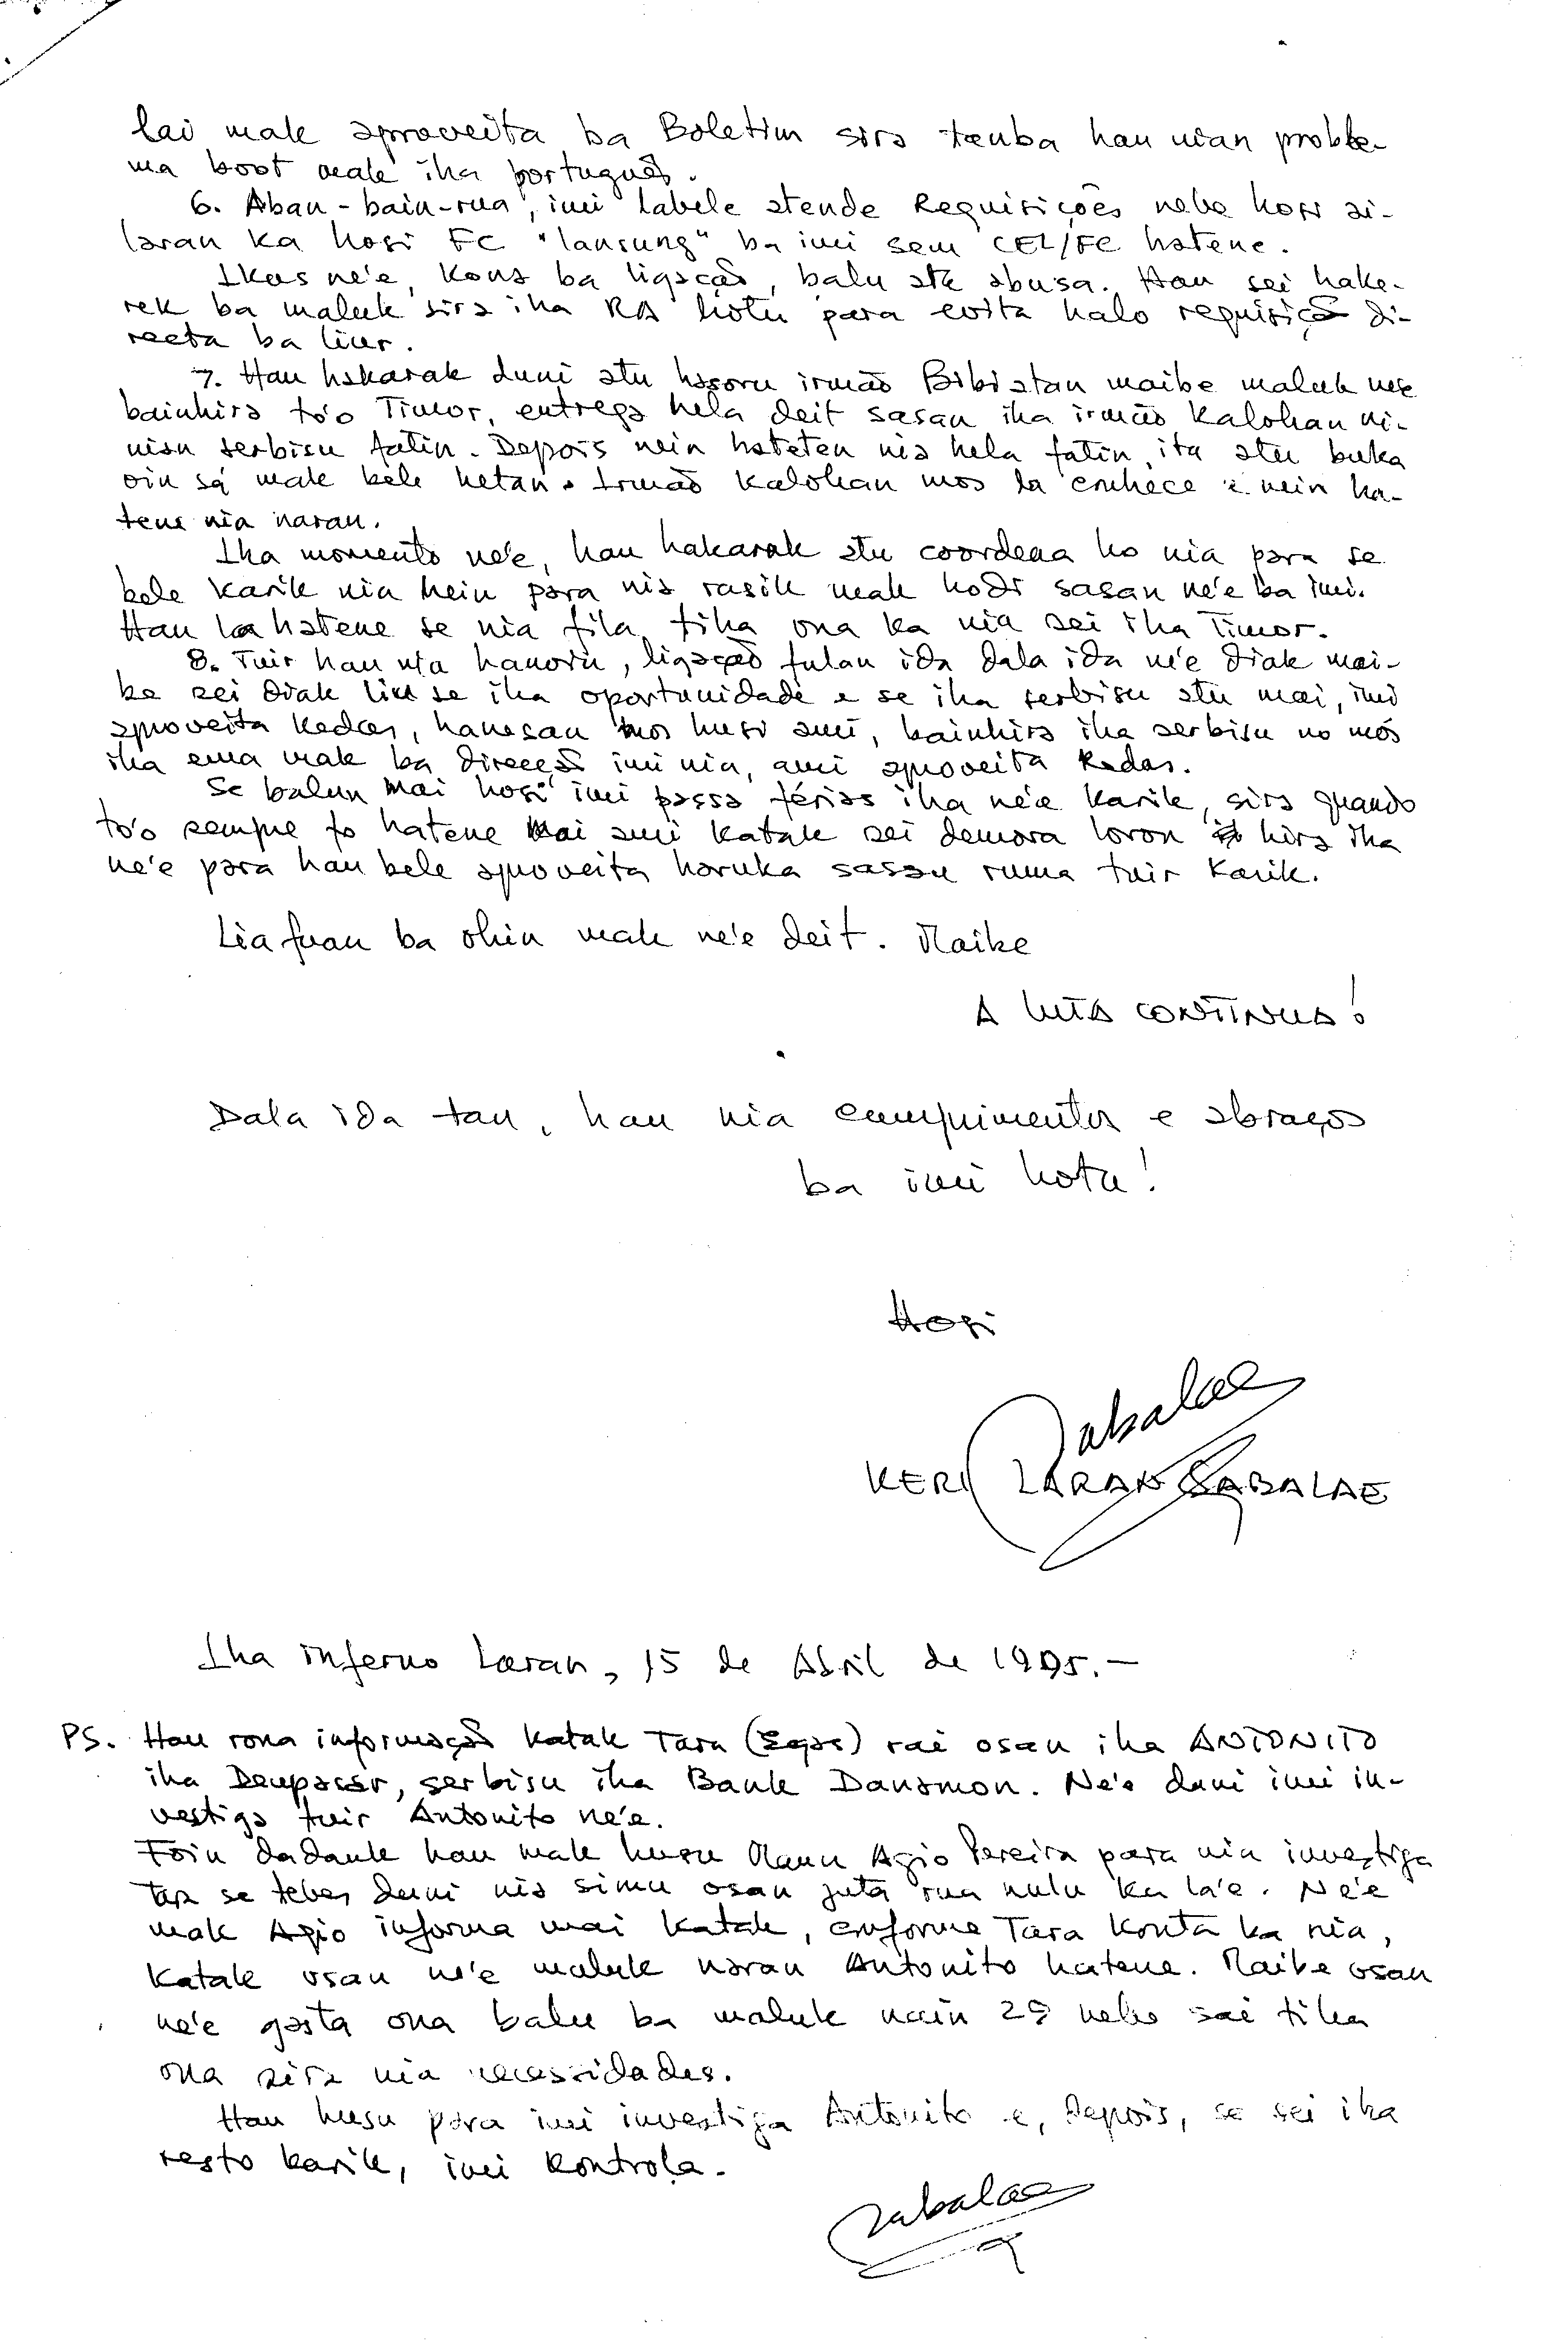 lai mak aproveita ba Boletim sira tanba hau nian proble-
ma boot mak iha português.
6. Aban-bain-rua, imi labele atende Requisições nebe hosi ai-
laran ka hosi FC "lansung" ba imi sem CEL/FC hatene.
Ikus ne'e, kona ba ligação, balu ata abusa. Hau sei hake-
rek ba maluk sira iha RA hotu para evita halo requisição di-
recta ba liur.
7. Hau hakarak duni atu hasoru irmão Bibiatan maibe maluk nee
bainhira to'o Timor, entrega hela deit sasan iha irmão Kalohan ni-
nian serbisu fatin. Depois nein hateten nia hela fatin, ita atu buka
oin sá mak bele hetan. Irmão Kalohan mos la conhece e nein ha-
tene nia naran.
Iha momento ne'e, hau hakarak atu coordena ho nia para se
bele karik nia hein para nia rasik mak hodi sasan ne'e ba imi.
Hau la hatene se nia fila tiha ona ka nia sei iha Timor.
8. Tuir hau nia hanoin, ligação fulan ida dala ida ne'e diak mai-
be sei diak liu se iha oportunidade e se iha serbisu atu mai, imi
aproveita kedas, hanesan mos husi ami, bainhira iha serbisu no mós
iha ema mak ba direcçã imi nia, ami aproveita kedas.
Se balun mai hosi imi passa férias iha ne'e karik, sira quando
to'o sempre fo hatene mai ami katak sei demora loron hira iha
ne'e para hau bele aproveita haruka sasan ruma tuir karik.
Liafuan ba ohin mak ne'e deit. Maibe
A LUTA CONTINUA!
Dala ida tan, hau nia cumprimentos e abraços
ba imi hotu!
Hosi
Sabalae
KERI LARAN SABALAE
Iha inferno laran, 15 de Abril de 1995.-
PS. Hau rona informação katak Tara (Egas) rai osan iha ANTONITO
iha Denpasar, serbisu iha Bank Danamon. Ne'e duni imi in-
vestiga tuir Antonito ne'e.
Foin dadauk hau mak husu Maun Agio Pereira para nia investiga
Tara se tebes duni nia simu osan juta rua nulu ka la'e. Ne'e
mak Agio informa mai katak, conforme Tara konta ba nia,
katak osan ne'e maluk naran Antonito hatene. Maibe osan
ne'e gasta ona balu ba maluk nain 29 nebe sai tiha
ona sira nia necessidades.
Hau husu para imi investiga Antonito e, depois, se sei iha
resto karik, imi kontrola.
Sabalae